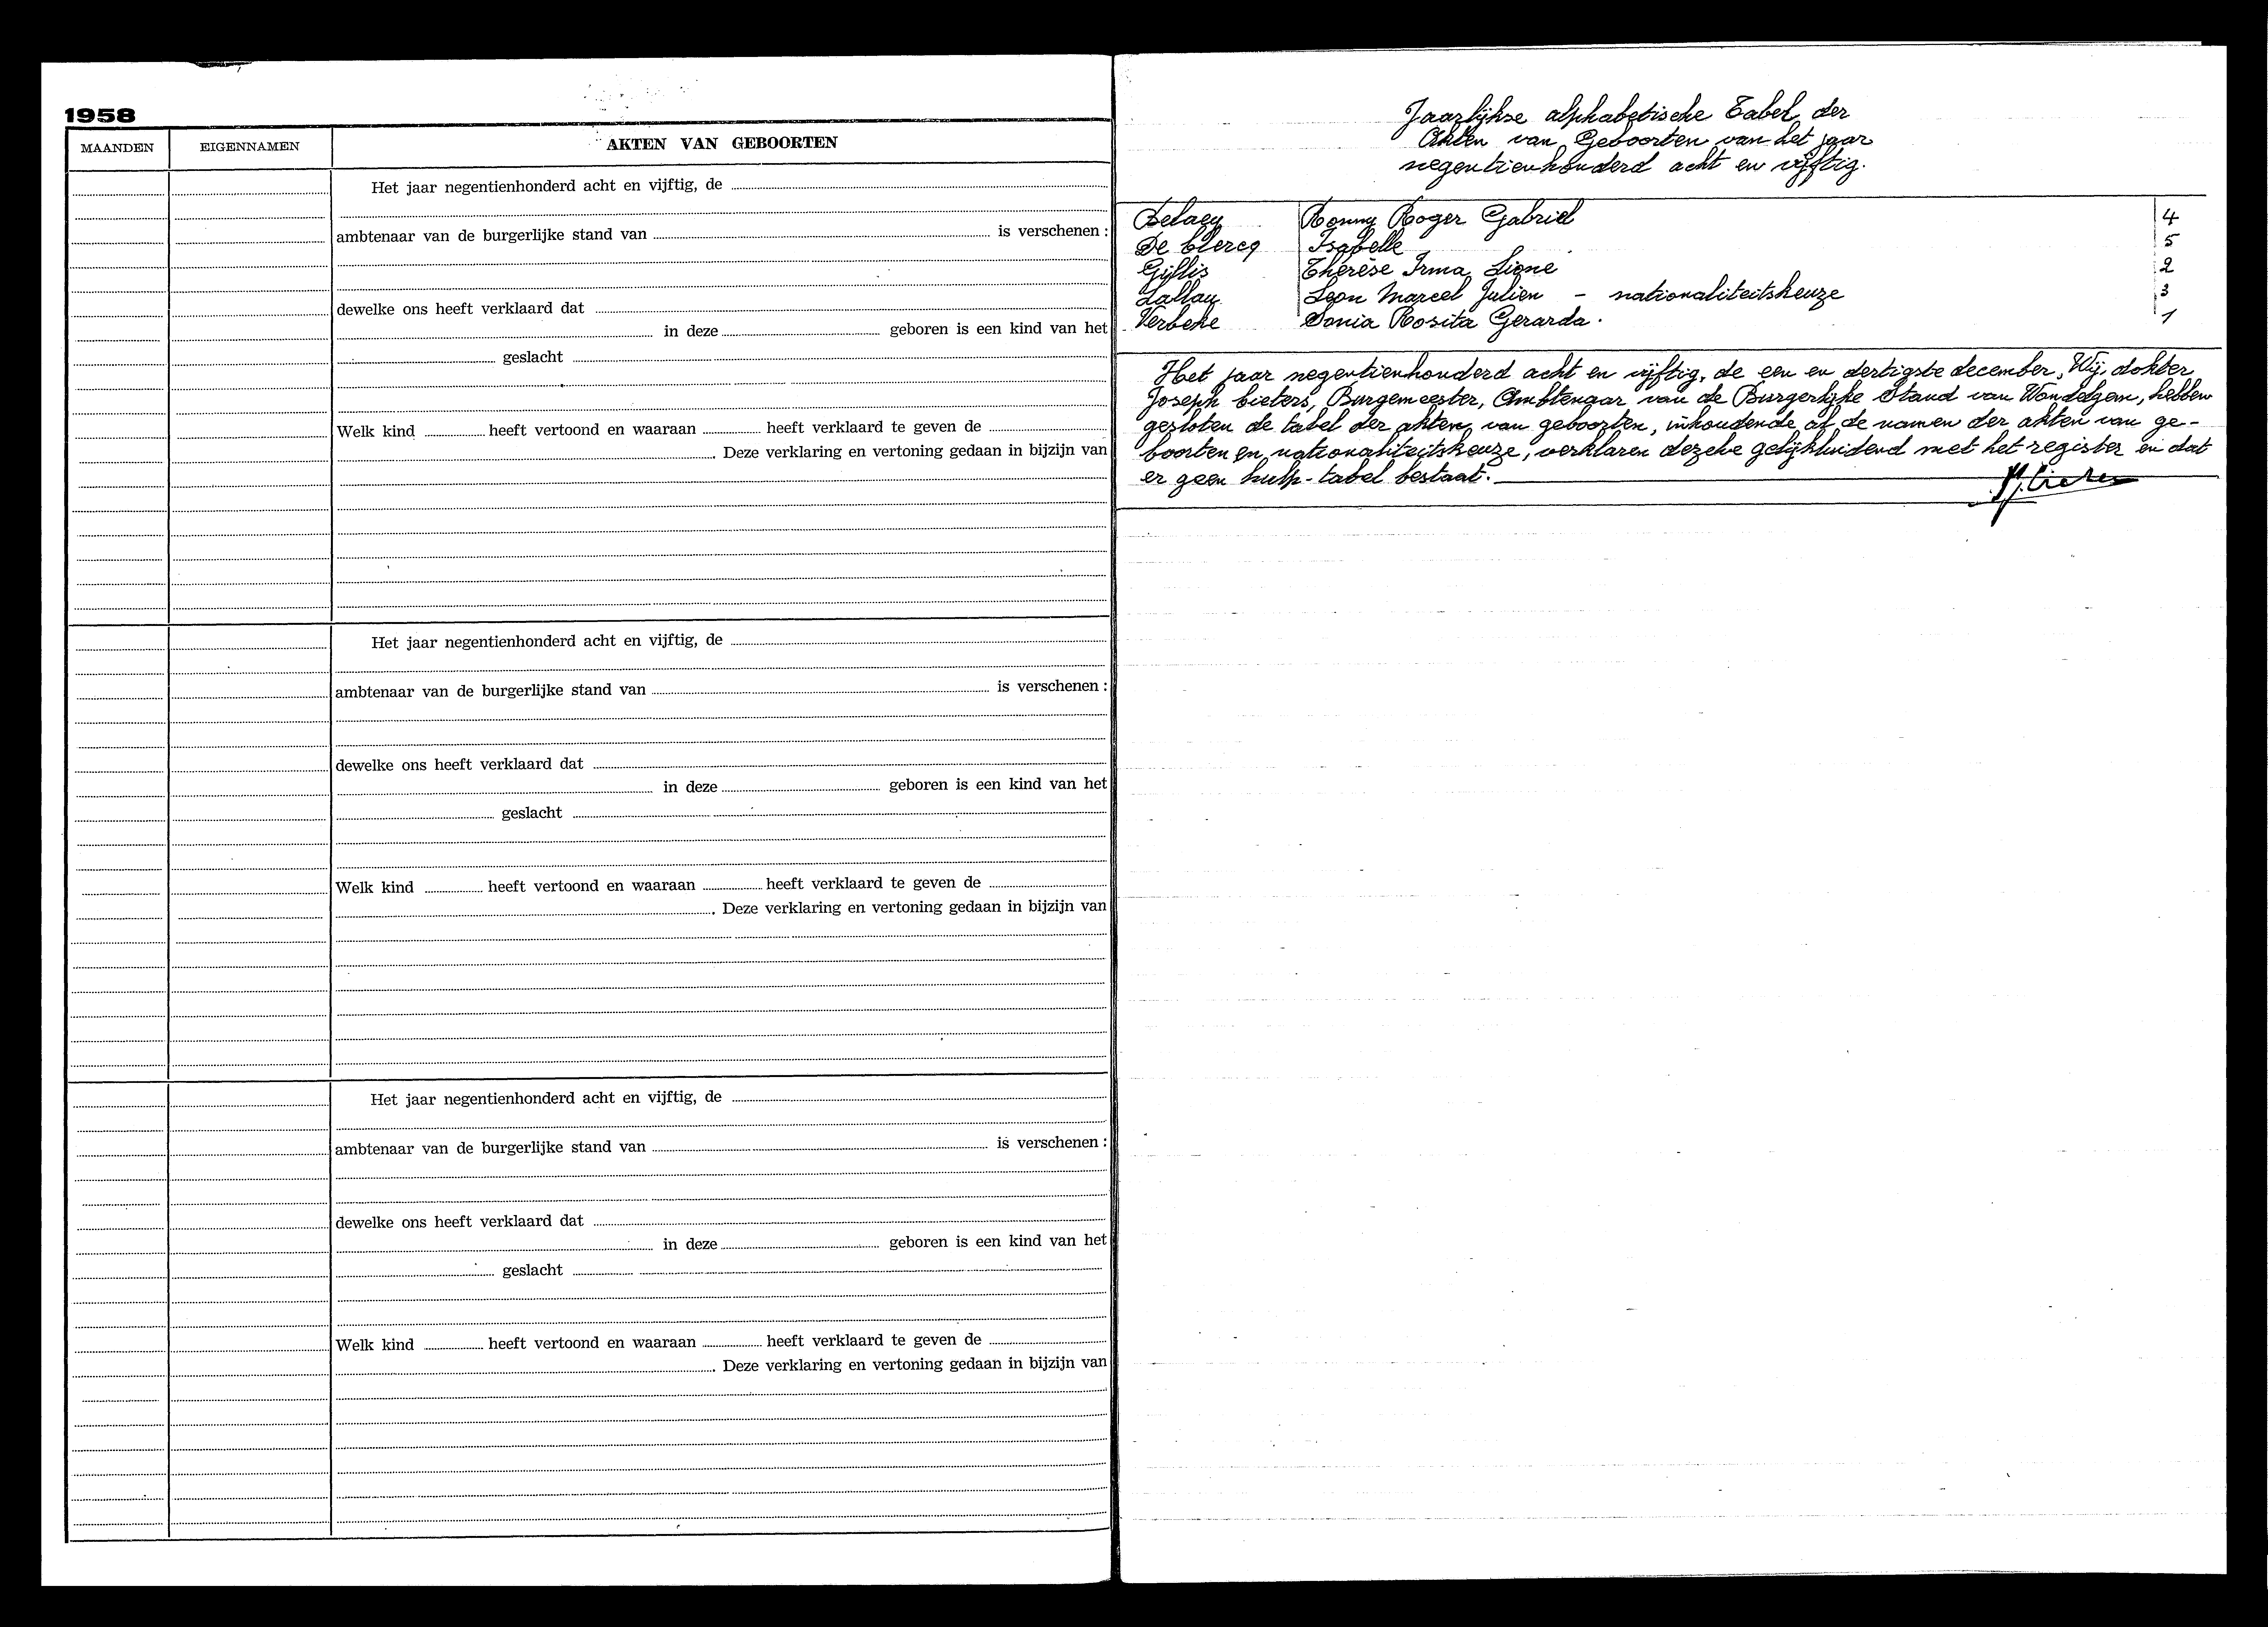 1958
MAANDEN EIGENNAMEN AKTEN VAN GEBOORTEN
Het jaar negentienhonderd acht en vijftig, de
ambtenaar van de burgerlijke stand van is verschenen :
dewelke ons heeft verklaard dat
in deze geboren is een kind van het
geslacht
Welk kind heeft vertoond en waaraan heeft verklaard te geven de
. Deze verklaring en vertoning gedaan in bijzijn van
Het jaar negentienhonderd acht en vijftig, de
ambtenaar van de burgerlijke stand van is verschenen :
dewelke ons heeft verklaard dat
in deze geboren is een kind van het
geslacht
Welk kind heeft vertoond en waaraan heeft verklaard te geven de
. Deze verklaring en vertoning gedaan in bijzijn van
Het jaar negentienhonderd acht en vijftig, de
ambtenaar van de burgerlijke stand van is verschenen :
dewelke ons heeft verklaard dat
in deze geboren is een kind van het
geslacht
Welk kind heeft vertoond en waaraan heeft verklaard te geven de
. Deze verklaring en vertoning gedaan in bijzijn van
Jaarlijkse alphabetische Tabel der
Akten van Geboorten van het jaar
negentienhonderd acht en vijftig.
Delaey Ronny Roger Gabriel 4
De Clercq Isabelle 5
Gillis Thérèse Irma 2
Lallau Leon Marcel Julien - nationaliteitskeuze 3
Verbeke Sonia Rosita Gerarda. 1
Het jaar negentienhonderd acht en vijftig, de een en dertigste december, Wij, dokter
Joseph Cieters, Burgemeester, Ambtenaar van de Burgerlijke Stand van Wondelgem, hebben
gesloten de tabel der akten van geboorten, inhoudende al de namen der akten van ge-
boorten en nationaliteitskeuze, verklaren dezelve gelijkluidend met het register en dat
er geen hulp-tabel bestaat.